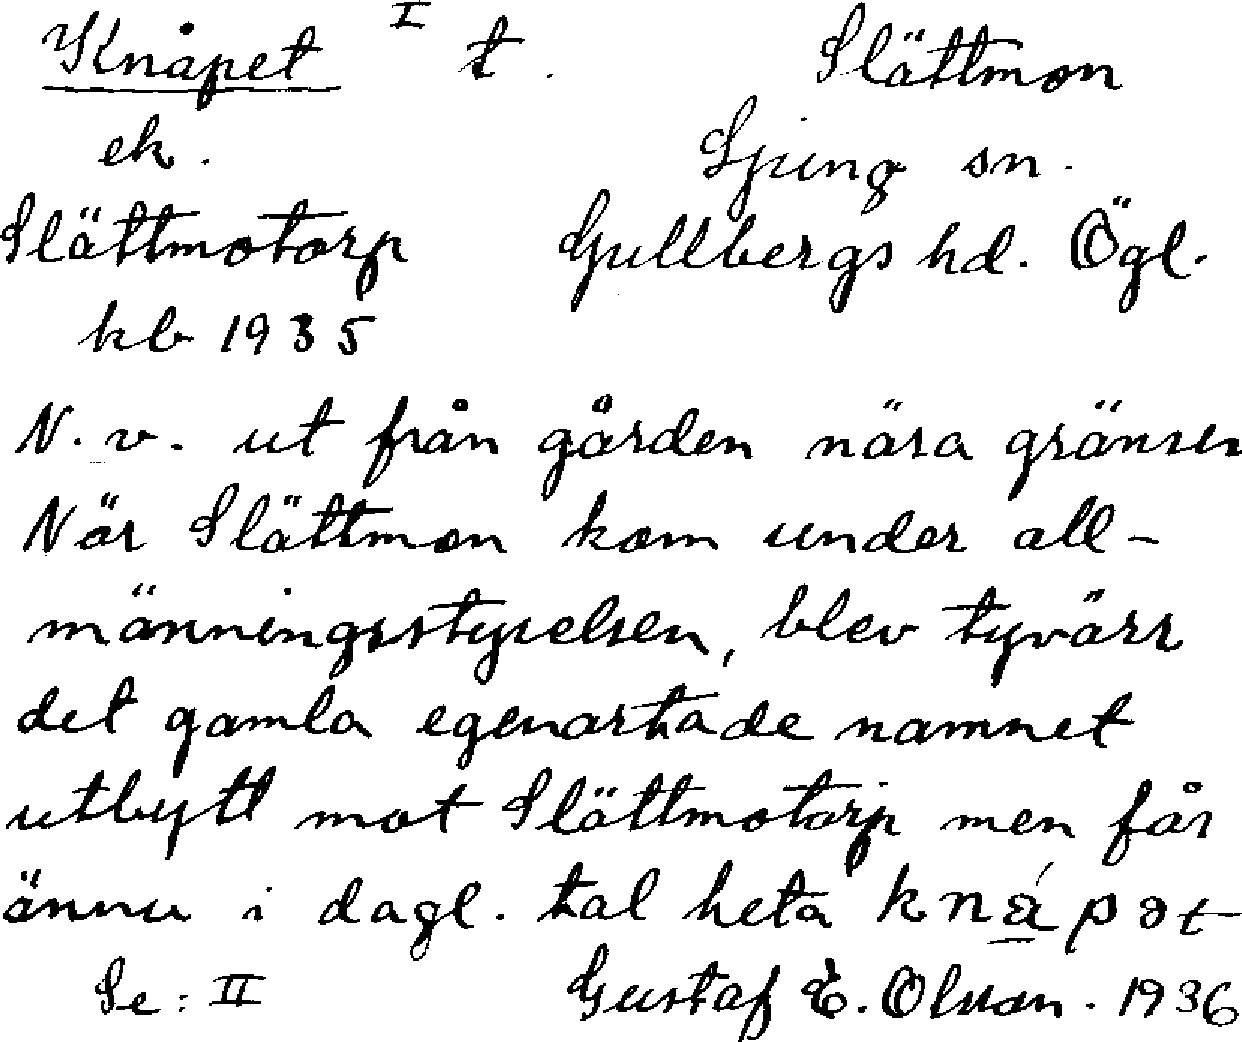 Knåpet I t. Slättmon
ek. Ljung sn.
Slättmotorp Gullbergs hd. Ögl.
kb 1935
N. v. ut från gården nära gränsen
När Slättmon kom under all-
männingsstyrelsen, blev tyvärr
det gamla egenartade namnet
utbytt mot Slättmotorp men får
ännu i dagl. tal heta
Se: II Gustaf E. Olsson. 1936